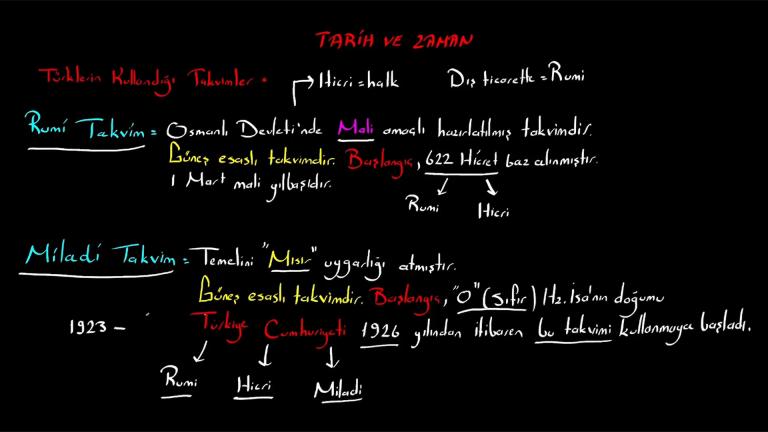 TARİH VE ZAMAN
Türklerin Kullandığı Takvimler
Hicri = halk
Dış ticarette = Rumi
Rumî Takvim = Osmanlı Devleti'nde Mali amaçlı hazırlatılmış takvimdir.
Güneş esaslı takvimdir. Başlangıç, 622 Hicret baz alınmıştır.
1 Mart mali yılbaşıdır.
Rumi Hicri
Miladi Takvim = Temelini "Mısır" uygarlığı atmıştır.
Güneş esaslı takvimdir. Başlangıç, "0" (Sıfır) Hz. İsa'nın doğumu
1923 - Türkiye Cumhuriyeti 1926 yılından itibaren bu takvimi kullanmaya başladı.
Rumi Hicri Miladi